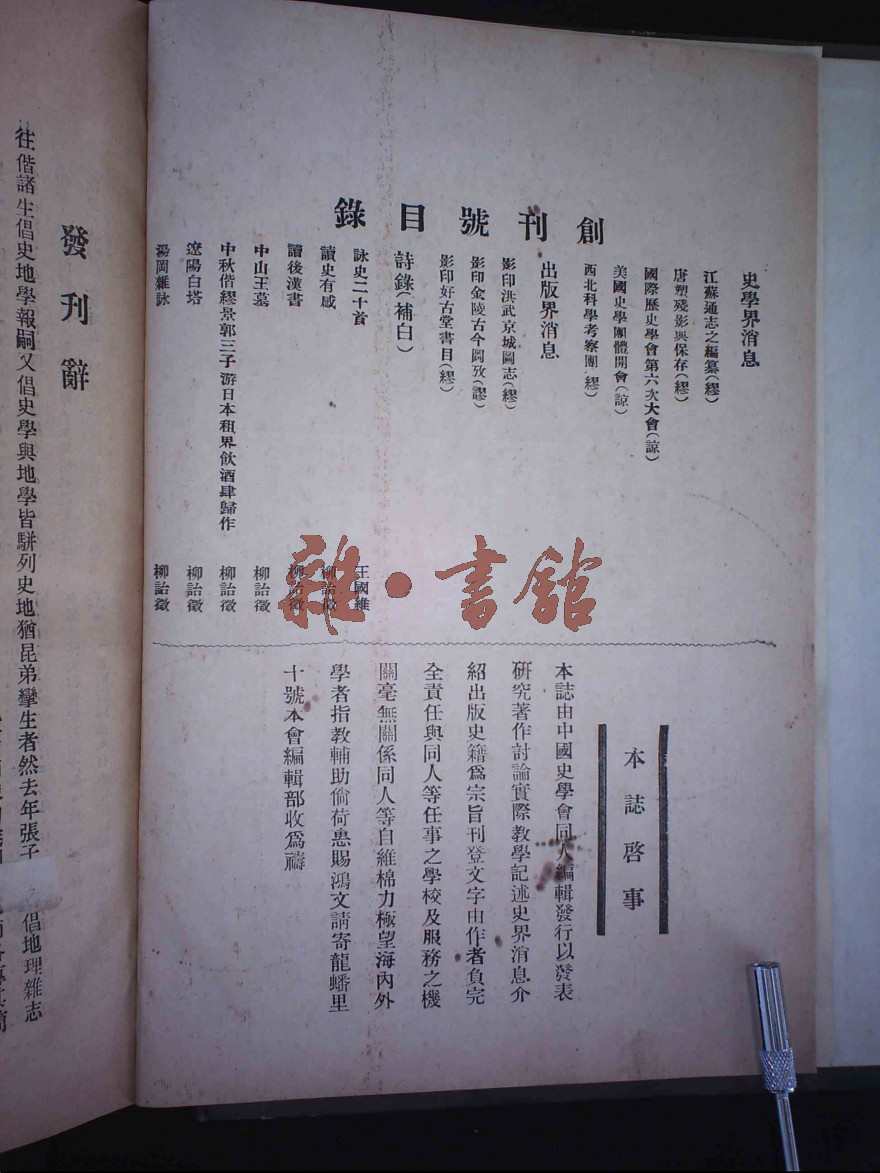 創刊號目錄
史學界消息
江蘇通志之編纂（繆）
唐塑殘影與保存（繆）
國際歷史學會第六次大會（諒）
美國史學團體開會（諒）
西北科學考察團 繆）
出版界消息
影印洪武京城圖志（繆）
影印金陵古今圖攷（謬）
影印好古堂書目（繆）
詩錄（補白）
詠史二十首 王國維
讀史有感 柳詒徵
讀後漢書 柳詒徵
中山王墓 柳詒徵
中秋偕繆景郭三子游日本租界飲酒肆歸作 柳詒徵
遼陽白塔 柳詒徵
湯岡雜詠 柳詒徵
本誌啓事
本誌由中國史學會同人編輯發行以發表
研究著作討論實際教學記述史界消息介
紹出版史籍爲宗旨刊登文字由作者負完
全責任與同人等任事之學校及服務之機
關毫無關係同人等自維棉力極望海內外
學者指教輔助倘荷惠賜鴻文請寄龍蟠里
十號本會編輯部收爲禱
雜·書館
發刊辭
往偕諸生倡史地學報嗣又倡史學與地學皆駢列史地猶昆弟孿生者然去年張子
倡地理雜志